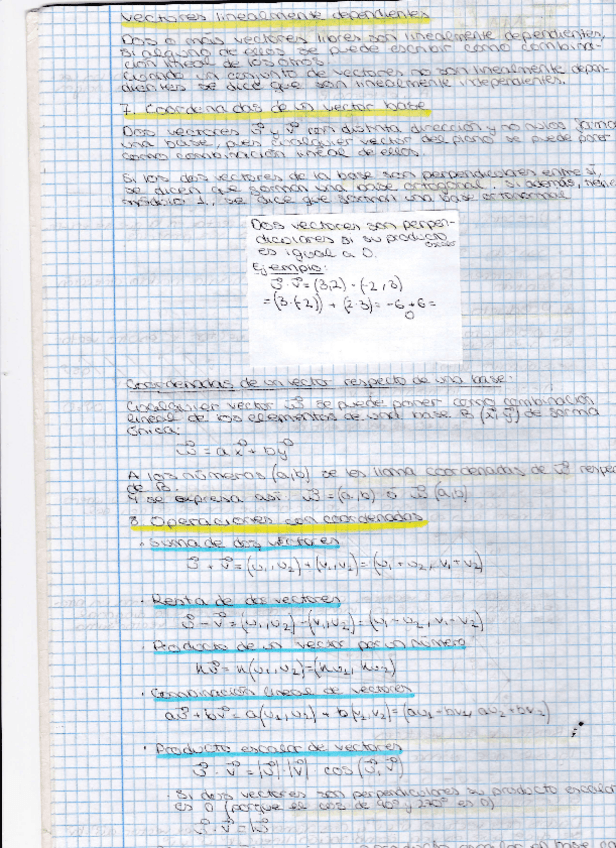 Vectores linealmente dependientes
Dos o más vectores libres son linealmente dependientes,
si alguno de ellos se puede escribir como combina-
ción lineal de los otros.
Cuando un conjunto de vectores no son linealmente depen-
dientes se dice que son linealmente independientes.
7. Coordenadas de un vector base
Dos vectores u⃗ y v⃗ con distinta dirección y no nulos forman
una base, pues cualquier vector del plano se puede poner
como combinación lineal de ellos.
Si los dos vectores de la base son perpendiculares entre sí,
se dicen que forman una base ortogonal. Si además, tienen
módulo 1, se dice que forman una base ortonormal
Dos vectores son perpen-
diculares si su producto
escalar
es igual a 0.
Ejemplo:
u⃗·v⃗=(3,2)·(-2,3)
=(3·(-2))+(2·3)=-6+6=
0
Coordenadas de un vector respecto de una base:
Cualquier vector w⃗ se puede poner como combinación
lineal de los elementos de una base B(x⃗,y⃗) de forma
única:
w⃗ = a x⃗ + b y⃗
A los números (a,b) se les llama coordenadas de w⃗ respec
de B.
Y se expresa así: w⃗=(a,b) ó w⃗(a,b)
8. Operaciones con coordenadas
· Suma de dos vectores
u⃗+v⃗=(u₁,u₂)+(v₁,v₂)=(u₁+u₂,v₁+v₂)
· Resta de dos vectores
u⃗-v⃗=(u₁,u₂)-(v₁,v₂)=(u₁-u₂,v₁-v₂)
· Producto de un vector por un número
ku⃗=k(u₁,u₂)=(ku₁,ku₂)
· Combinación lineal de vectores
au⃗+bv⃗=a(u₁,u₂)+b(v₁,v₂)=(au₁-bv₁,au₂+bv₂)
· Producto escalar de vectores
u⃗·v⃗=|u⃗|·|v⃗| cos(u⃗,v⃗)
· Si dos vectores son perpendiculares su producto escalar
es 0 (porque el cos de 90º y 270º es 0)